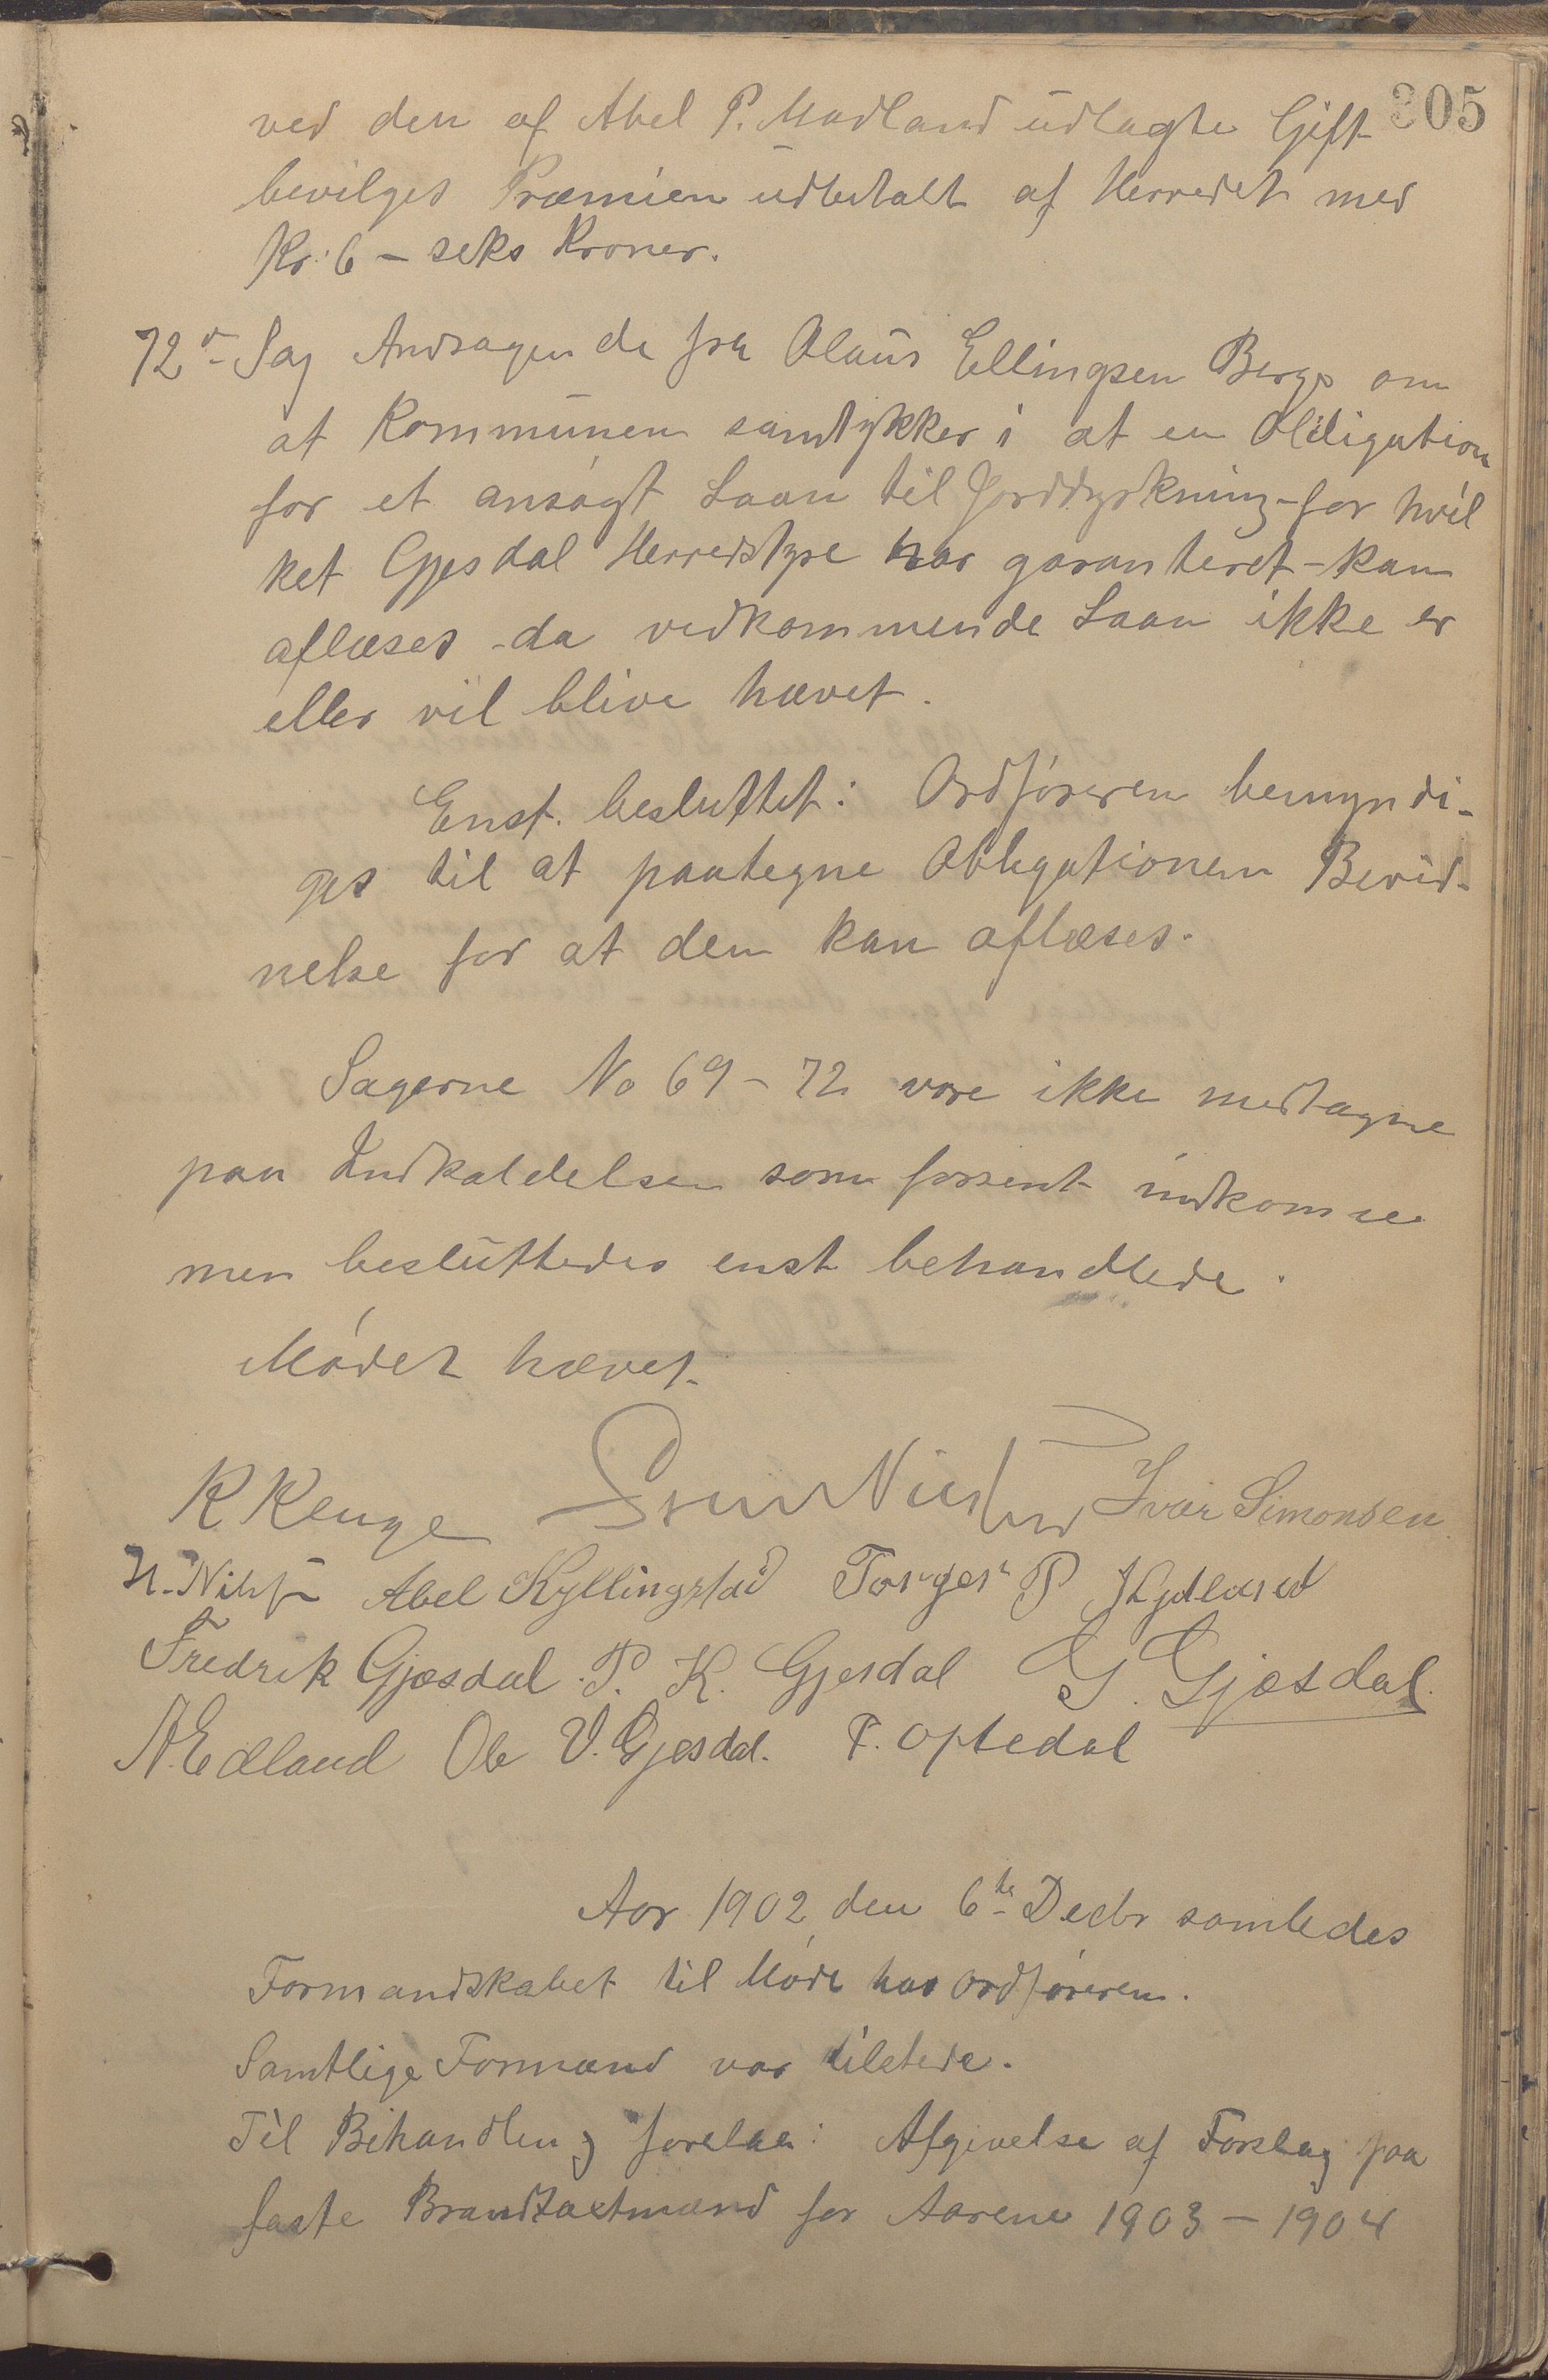 305
ved den af Abel P. Madland udlagte Gift
bevilges Præmien udbetalt af Herredet med
Kr: 6 - seks Kroner.
72d Sag Andragende fra Olaus Ellingsen Berge om
at Kommunen samtykker i at en Obligation
for et ansøgt Laan til Jorddyrkning - for hvil
ket Gjesdal Herredstyre har garanteret - kan
aflæses - da vedkommende Laan ikke er
eller vil blive hævet.
Enst. besluttet: Ordføreren bemyndi-
ges til at paategne Obligationen Bevid-
nelse for at den kan aflæses.
Sagerne No 69 - 72 vare ikke medtagne
paa Indkaldelsen som forsent indkomne
men besluttedes enst behandlede.
Mødet hævet.
K Kenge Ivar Simonsen
Abel Kyllingstad Torger P
Fredrik Gjæsdal P. K. Gjesdal G. Gjæsdal.
A. Edland Ole V. Gjesdal. T. Oftedal
Aar 1902 den 6te Decbr samledes
Formandskabet til Møde hos Ordføreren.
Samtlige Formænd var tilstede.
Til Behandling forelaa: Afgivelse af Forslag paa
faste Brandtaxtmænd for Aarene 1903 - 1904